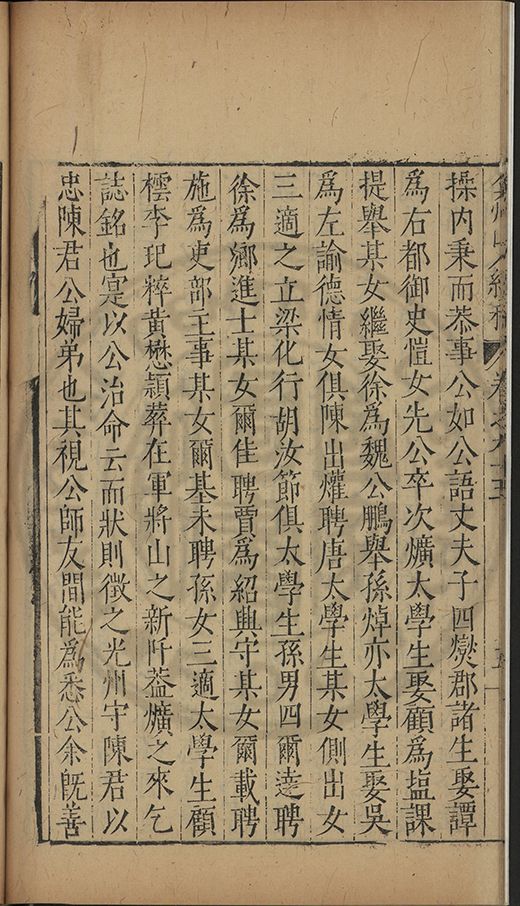 操內秉而恭事公如公語丈夫子四爕郡諸生娶譚
為右都御史愷女先公卒次爌太學生娶顧為塩課
提舉某女繼娶徐為魏公鵬舉孫焯亦太學生娶吳
為左諭德情女俱陳出爟聘唐太學生某女側出女
三適之立梁化行胡汝節俱太學生孫男四爾逵聘
徐為鄉進士某女爾佳聘賈為紹興守某女爾載聘
施為吏部主事某女爾基未聘孫女三適太學生顧
橒李玘粹黃懋頴葬在軍將山之新阡葢爌之來乞
誌銘也寔以公治命云而狀則徵之光州守陳君以
忠陳君公婦弟也其視公師友間能為悉公余旣善